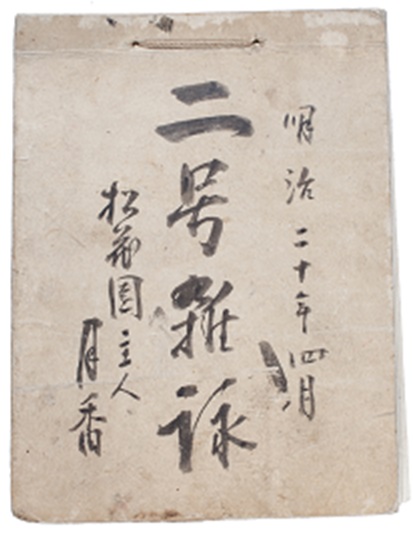 明治二十年四月
二号雑詠
松 園主人
月香